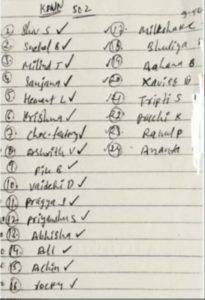 502
1 Shiv S ✓
2 Snehal B ✓
3 Milind J ✓
4 Sanjana ✓
5 Hemant L ✓
6 Krishna ✓
7 Choc-factory ✓
8 Ashwith V ✓
9 Piu B ✓
10 Vaidehi D ✓
11 Pragya J ✓
12 Priyanshu S ✓
13 Abhisha ✓
14 All ✓
15 Achin ✓
16 rocky ✓
17 Milkshake
18 Bhuliya
19 Bahana B
20 Kavish B
21 Tripti S
22 Prachi K
23 Rahul P
24 Ananta